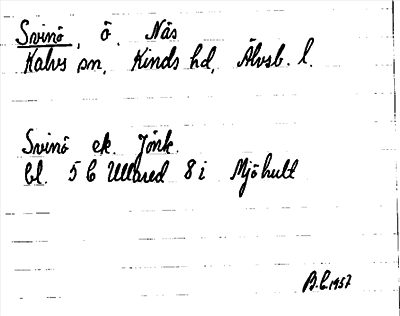 Svinö, ö. Näs
Kalvs sn, Kinds hd, Älvsb. l.
Svinö ek. Jönk.
bl. 5 C Ullared 8 i Mjöhult
B.L. 1957